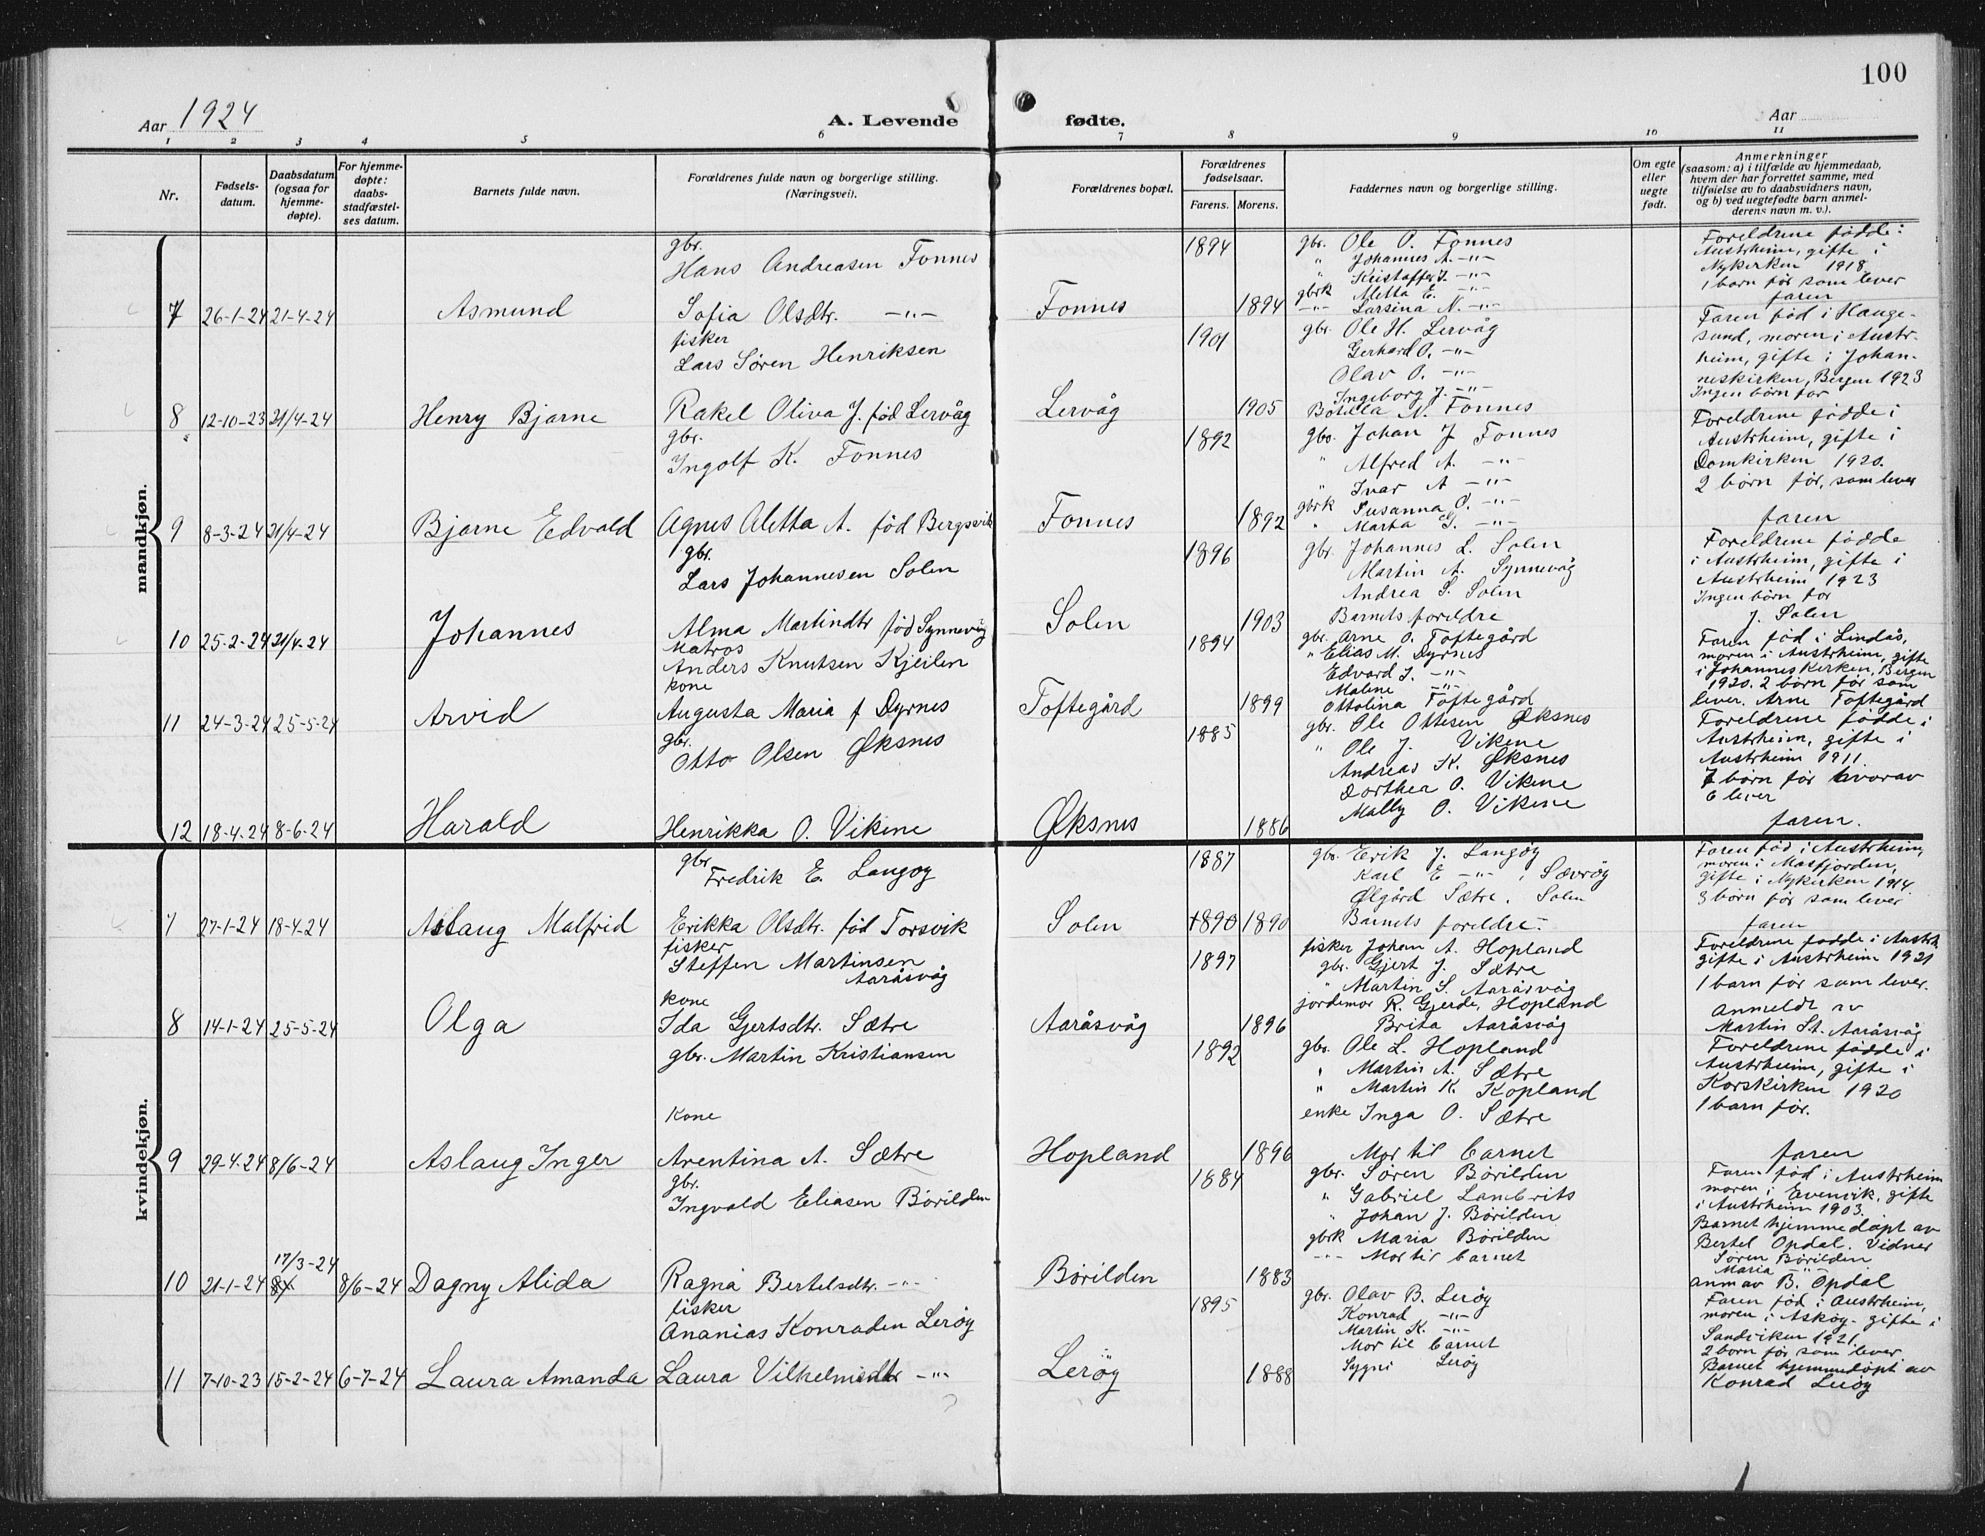 100
Aar 1924
A. Levende fødte.
Aar
1 2 3 4 5 6 7 8 9 10 11
Nr.
Fødsels-
datum.
Daabsdatum
(ogsaa for
hjemme-
døpte).
For hjemme-
døpte:
daabs-
stadfæstel-
ses datum.
Barnets fulde navn.
Forældrenes fulde navn og borgerlige stilling.
(Næringsvei).
Forældrenes bopæl.
Forældrenes
fødselsaar.
Farens. Morens.
Faddernes navn og borgerlige stilling.
Om egte
eller
uegte
født.
Anmerkninger
(saasom: a) i tilfælde av hjemmedaab,
hvem der har forrettet samme, med
tilføielse av to daabsvidners navn,
og b) ved uegtefødte barn anmel-
derens navn m. v.).
mandkjøn.
7 26-1-24 21-4-24 Asmund
gbr.
Hans Andreasen Fonnes
Sofia Olsdtr. -"-
Fonnes
1894
1894
gbr. Ole O. Fonnes
" Johannes A. -"-
" Kristoffer J. -"-
gbrk Aletta E. -"-
-"- Larsina N. -"-
Foreldrene fødde i
Austrheim, gifte i
Nykerken 1918
1 barn før som lever
faren
8 12-10-23 21/4-24 Henry Bjarne
fisker
Lars Søren Henriksen
Rakel Oliva J. fød Lervåg
Lervåg
1901
1905
gbr. Ole H. Lervåg
Gerhard O. -"-
Olav O. -"-
Ingeborg J. -"-
Botilla N. Fonnes
Faren fød i Hauge-
sund, moren i Austr-
heim, gifte i Johan-
neskirken, Bergen 1923
Ingen børn før
9 8-3-24 21/4-24 Bjarne Edvald
gbr.
Ingolf K. Fonnes
Agnes Aletta A. fød Bergsvik
Fonnes
1892
1892
gbr. Johan J Fonnes
" Alfred A. -"-
" Ivar A -"-
gbrk Susanna O. -"-
" Marta G. -"-
Foreldrene fødde i
Austrheim, gifte i
Domkirken 1920.
2 børn før, som lever
faren
10 25-2-24 21/4-24 Johannes
gbr.
Lars Johannesen Solen
Alma Martindtr fød Synnevåg
Solen
1896
1903
gbr. Johannes L. Solen
Martin A. Synnevåg
Andrea S. Solen
Barnets foreldre
Foreldrene fødde
i Austrheim, gifte i
Austrheim 1923
Ingen børn før
J. Solen
11 24-3-24 25-5-24 Arvid
Matros
Anders Knutsen Kjeilen
kone
Augusta Maria f Dyrnes
Toftegård
1894
1899
gbr. Arne O. Toftegård
" Elias M. Dyrnes
Edvard J. -"-
Malene -"-
Ottolina Toftegård
Faren fød i Lindås,
moren i Austrheim, gifte
i Johannes Kirken, Bergen
1920. 2 børn før som
lever. Arne Toftegård
12 18-4-24 8-6-24 Harald
gbr.
Otto Olsen Øksnes
Henrikka O. Vikene
Øksnes
1885
1886
gbr. Ole Ottesen Øksnes
" Ole J. Vikene
Andreas K. Øksnes
Dorthea O. Vikene
Mally O. Vikene
Foreldrene fødde i
Austrheim, gifte i
Austrheim 1911
7 børn før hvorav
6 lever
faren.
kvindekjøn.
7 27-1-24 18-4-24 Aslaug Malfrid
gbr
Fredrik E. Langøy
Erikka Olsdtr. fød Torsvik
Solen
1887
1890 1890
gbr. Erik J. Langøy
Karl E -"-, Sævrøy
Ølgård Sætre, Solen
Barnets foreldre
Faren fød i Austrheim,
moren i Masfjorden,
gifte i Nykirken 1914
3 børn før som lever
faren
8 14-1-24 25-5-24 Olga
fisker
Steffen Martinsen
Aaråsvåg
kone
Ida Gjertsdtr. Sætre
Aaråsvåg
1897
1896
fisker Johan A. Hopland
gbr. Gjert J. Sætre
" Martin S. Aaråsvåg
jordemor R. Gjerde, Hopland
Brita Aaråsvåg
Foreldrene fødde i Austrh.
gifte i Austrheim 1921
1 barn før som lever.
anmeldt av
Martin St. Aaråsvåg
9 29-4-24 8/6-24 Aslaug Inger
gbr. Martin Kristiansen
Kone
Arentina A. Sætre
Hopland
1892
1896
gbr. Ole L. Hopland
" Martin A. Sætre
" Martin K. Hopland
enke Inga O. Sætre
Mor til barnet
Foreldrene fødde i
Austrheim, gifte i
Korskirken 1920
1 barn før.
faren
10 21-1-24 17/3-24 8/6-24 Dagny Alida
gbr.
Ingvald Eliasen Børilden
Ragna Bertelsdtr. -"-
Børilden
1884
1883
gbr. Søren Børilden
" Gabriel Lambrits
" Johan J. Børilden
gbrk Maria Børilden
-"- Mor til barnet
Faren fød i Austrheim
moren i Evenvik, gifte
i Austrheim 1903.
Barnet hjemmedøpt av
Bertel Opdal. Vidner
Søren Børilden
Maria -"-
anm av B. Opdal
11 7-10-23 15-2-24 6-7-24 Laura Amanda
fisker
Ananias Konraden Lerøy
Laura Vilhelmsdtr -"-
Lerøy
1895
1888
gbr. Olav B. Lerøy
Konrad -"-
Martin K. -"-
Mor til barnet
Sygni Lerøy
Faren fød i Austrheim,
moren i Askøy gifte i
Sandviken 1921
2 børn før som lever
Barnet hjemmedøpt av
Konrad Lerøy